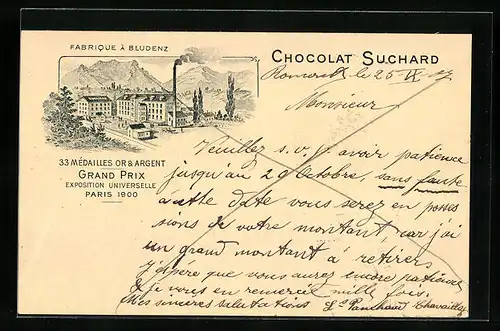 FABRIQUE À BLUDENZ
CHOCOLAT SUCHARD
le 25 IX
Monsieur
Veuillez s. v. p. avoir patience
jusqu'au 29 Octobre, sans faute
33 MÉDAILLES OR & ARGENT
GRAND PRIX
EXPOSITION UNIVERSELLE
PARIS 1900
à cette date vous serez en posses
sions de votre montant, car j'ai
un grand montant à retirer,
j'espère que vous aurez encore patience
je vous en remercie mille fois.
Mes sincères salutations